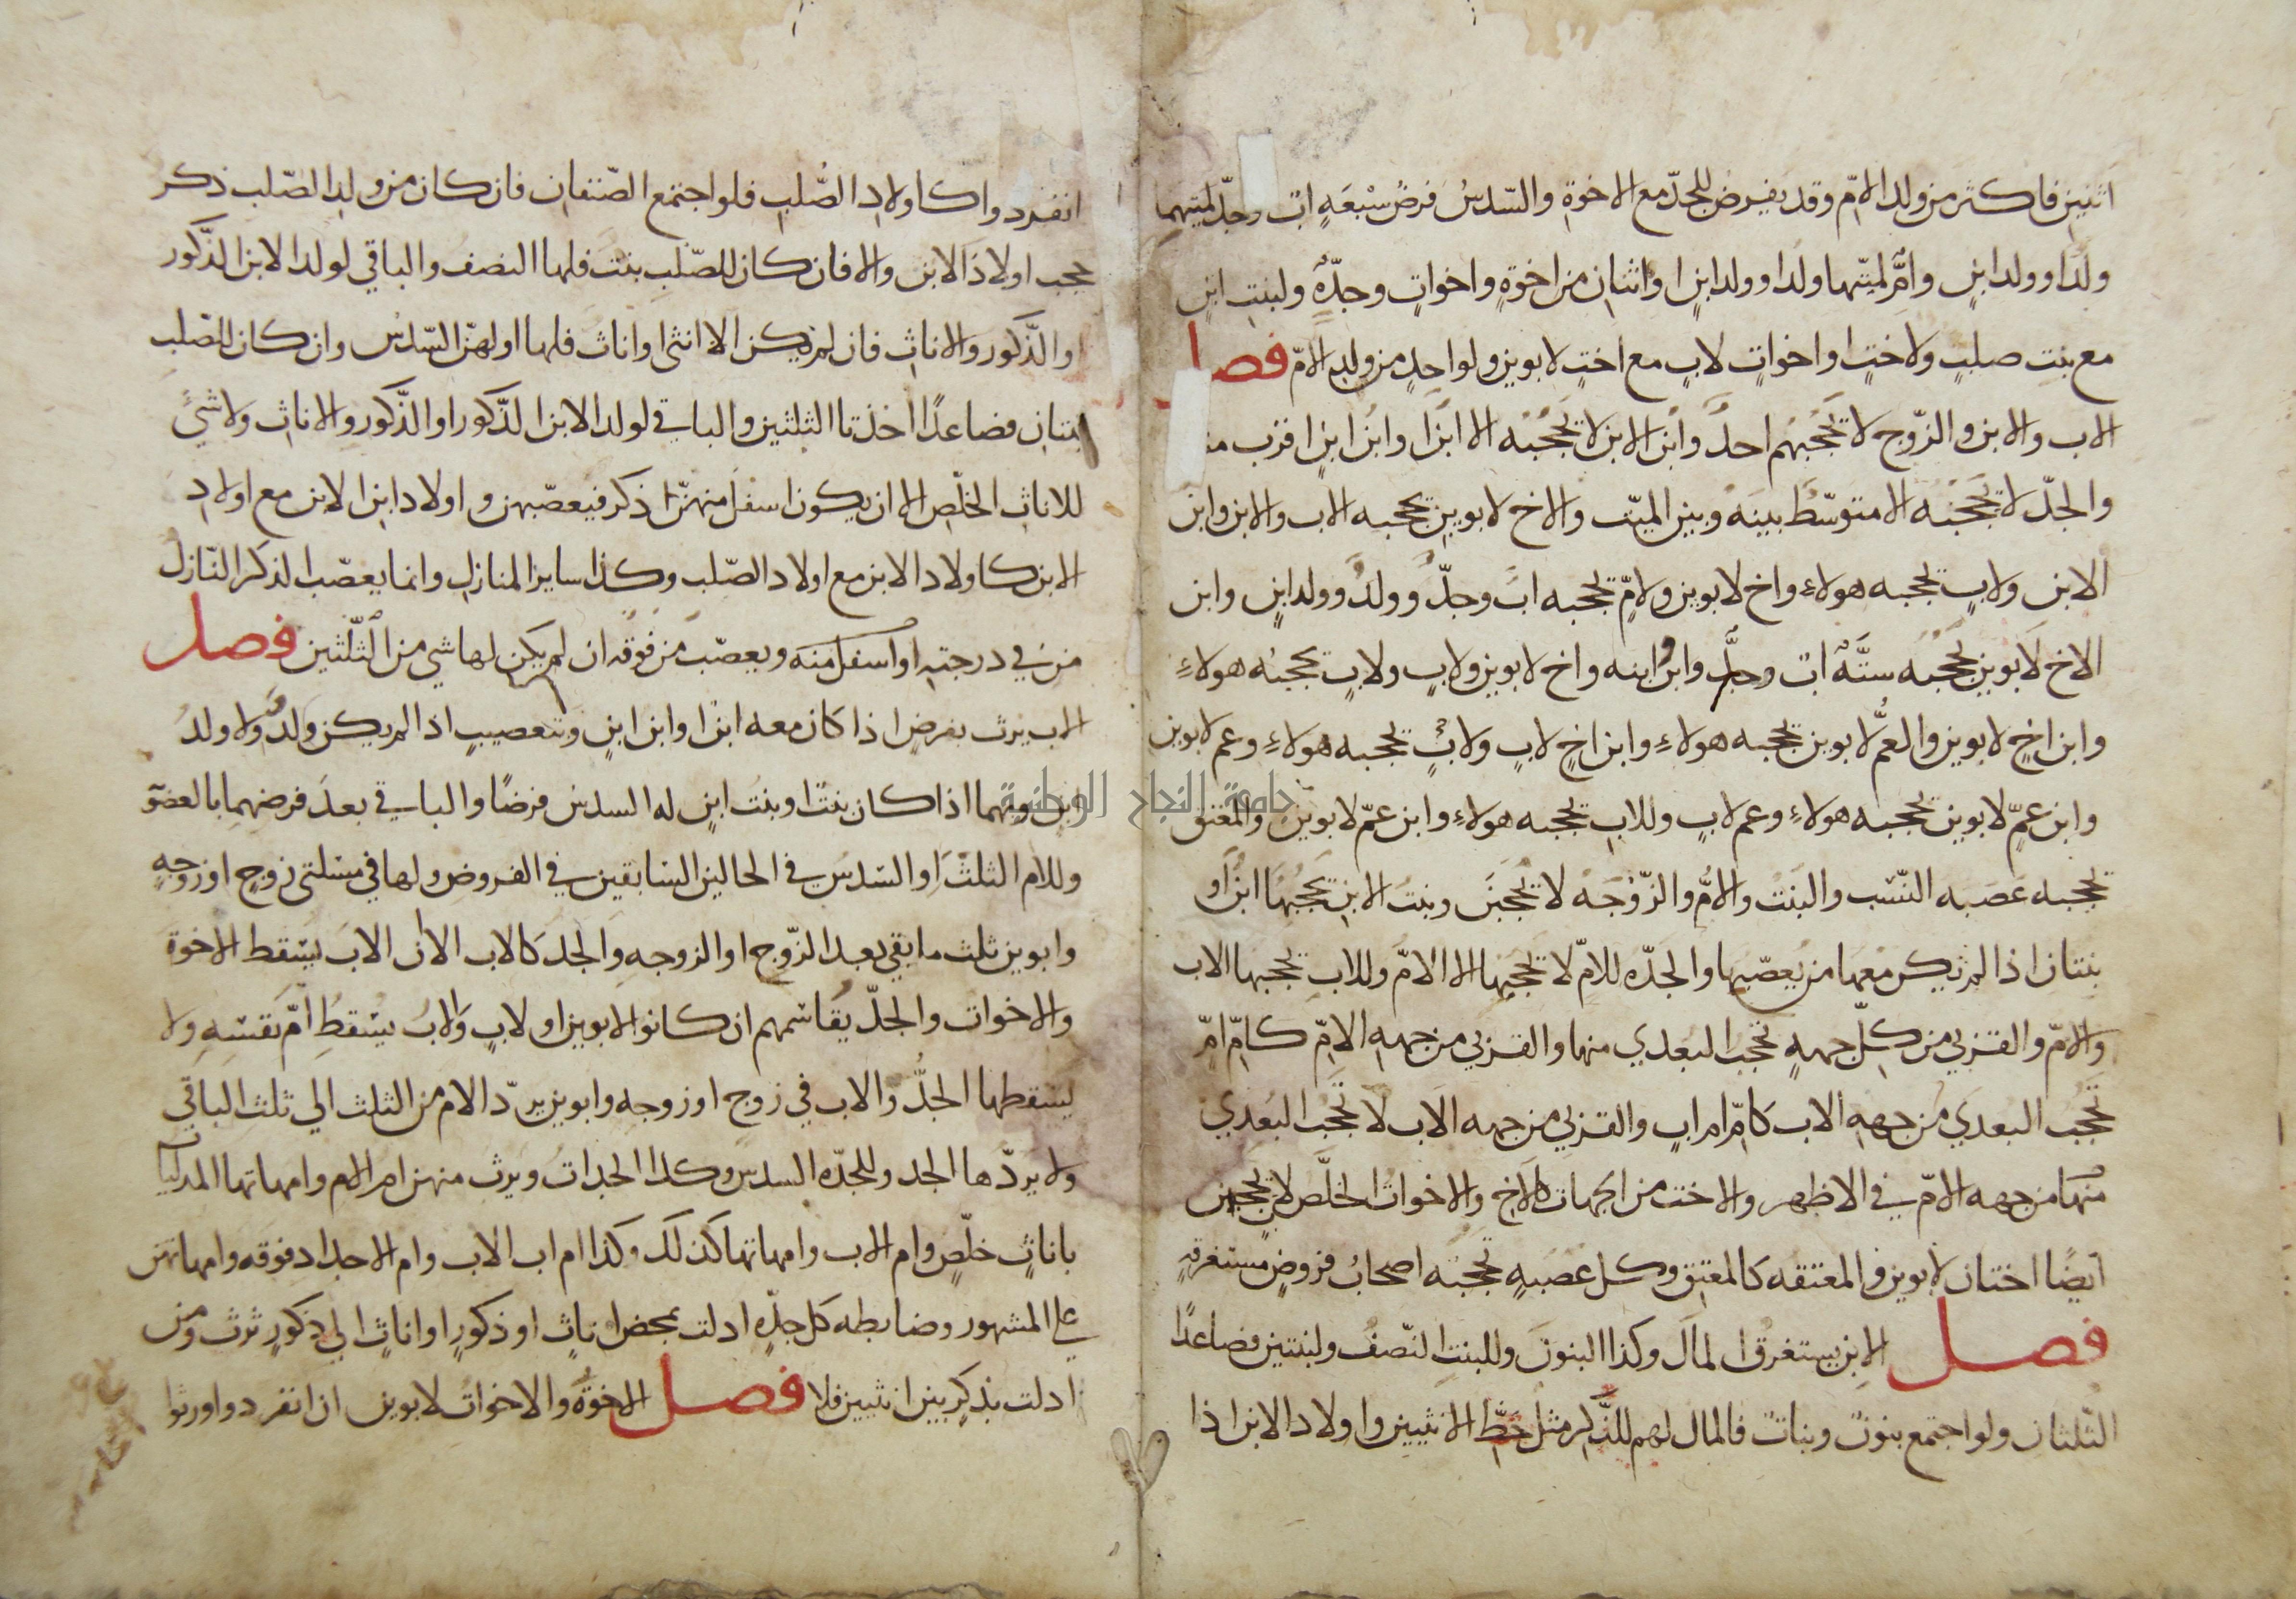 اثنين فاكثر من ولد الام وقد يفرض للجد مع الاخوة والسدس فرض سبعة اب وجد لميتهما
ولد او ولد ابن وام لميتها ولد او ولد ابن او اثنان من اخوة واخوات وجدة ولبنت ابن
مع بنت صلب ولاخت او اخوات لاب مع اخت لابوين ولواحد من ولد الام فصل
الاب والابن والزوج لا يحجبهم احد وابن الابن لا يحجبه الا ابن او ابن ابن اقرب منه
والجد لا يحجبه الا متوسط بينه وبين الميت والاخ لابوين يحجبه الاب والابن وابن
الابن ولاب يحجبه هولاء واخ لابوين ولام يحجبه اب وجد وولد وولد ابن وابن
الاخ لابوين يحجبه ستة اب وجد وابن وابنه واخ لابوين ولاب ولاب يحجبه هولاء
وابن اخ لابوين والعم لابوين يحجبه هولاء وابن اخ لاب ولاب يحجبه هولاء وعم لابوين
وابن عم لابوين يحجبه هولاء وعم لاب وللاب يحجبه هولاء وابن عم لابوين والمعتق
يحجبه عصبه النسب والبنت والام والزوجه لا يحجبن وبنت الابن يحجبها ابن او
بنتان اذا لم يكن معها من يعصبها والجده للام لا يحجبها الا الام وللاب يحجبها الاب
والام والقربي من كل جهه تحجب البعدي منها والقربي من جهه الام كام ام
تحجب البعدي من جهه الاب كام ام اب والقربي من جهه الاب لا تحجب البعدي
منها من جهه الام في الاظهر والاخت من الجهات كالاخ والاخوات الخلص لاب يحجبهن
ايضا اختان لابوين والمعتقه كالمعتق وكل عصبه يحجبه اصحاب فروض مستغرقه
فصل الابن يستغرق المال وكذا البنون وللبنت النصف ولبنتين فصاعدا
الثلثان ولو اجتمع بنون وبنات فالمال لهم للذكر مثل حظ الانثيين واولاد الابن اذا
انفردوا كاولاد الصلب فلو اجتمع الصنفان فان كان من ولد الصلب ذكر
حجب اولاد الابن والا فان كان للصلب بنت فلها النصف والباقي لولد الابن الذكور
او الذكور والاناث فان لم يكن الا انثى او اناث فلها او لهن السدس وان كان للصلب
بنتان فصاعدا اخذتا الثلثين والباقي لولد الابن الذكور او الذكور والاناث ولا شي
للاناث الخلص الا ان يكون اسفل منهن ذكر فيعصبهن واولاد ابن الابن مع اولاد
الابن كاولاد الابن مع اولاد الصلب وكذا ساير المنازل وانما يعصب الذكر النازل
من في درجته او اسفل منه ويعصب من فوقه ان لم يكن لها شي من الثلثين فصل
الاب يرث بفرض اذا كان معه ابن او ابن ابن وبتعصيب اذا لم يكن ولد ولا ولد
ابن وبهما اذا كان بنت او بنت ابن له السدس فرضا والباقي بعد فرضهما بالعصوبة
وللام الثلث او السدس في الحالين السابقين في الفروض ولها في مسئلتي زوج او زوجه
وابوين ثلث ما بقي بعد الزوج او الزوجه والجد كالاب الا ان الاب يسقط الاخوة
والاخوات والجد يقاسمهم ان كانوا لابوين او لاب والاب يسقط ام نفسه ولا
يسقطها الجد والاب في زوج او زوجه وابوين يرد الام من الثلث الي ثلث الباقي
ولا يردها الجد وللجده السدس وكذا الجدات ويرث منهن ام الام وامهاتها المدليات
باناث خلص وام الاب وامهاتها كذلك وكذا ام اب الاب وام الاجداد فوقه وامهاتهن
علي المشهور وضابطه كل جده ادلت بمحض اناث او ذكور او اناث الي ذكور ترث ومن
ادلت بذكر بين انثيين فلا فصل الاخوة والاخوات لابوين ان انفردوا ورثوا
جامعة النجاح الوطنية